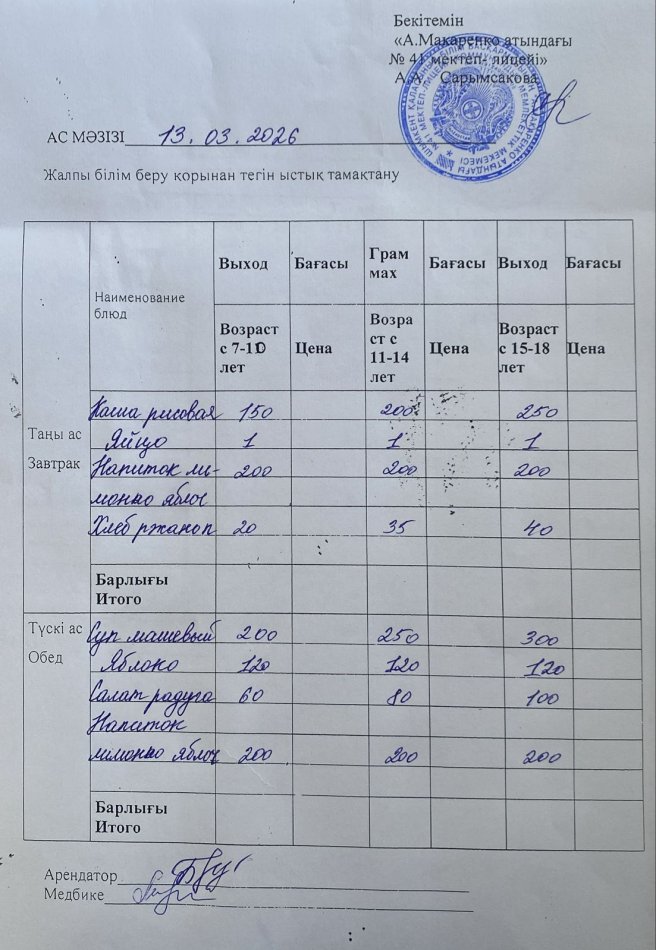 Бекітемін
«А.Макаренко атындағы
№ 41 мектеп- лицейі»
А.А. Сарымсакова
АС МӘЗІЗІ 13.03.2026
Жалпы білім беру қорынан тегін ыстық тамақтану
Наименование блюд Выход Бағасы Грам мах Бағасы Выход Бағасы
Возраст с 7-11 лет Цена Возра ст с 11-14 лет Цена Возраст с 15-18 лет Цена
Таңы ас
Завтрак
Каша рисовая 150 200 250
Яйцо 1 1 1
Напиток ли- 200 200 200
монно яблоч
Хлеб ржаной 20 35 40
Барлығы
Итого
Түскі ас
Обед
Суп машевый 200 250 300
Яблоко 120 120 120
Салат радуга 60 80 100
Напиток
лимонно яблоч 200 200 200
Барлығы
Итого
Арендатор
Медбике